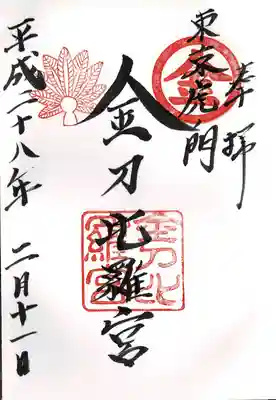 奉拝
東京虎ノ門
金
金刀比羅宮
金刀比羅宮
平成二十八年 二月十一日